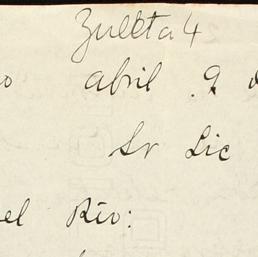 Zulleta 4
o abril 9 d
Sr Lic
el Rio: